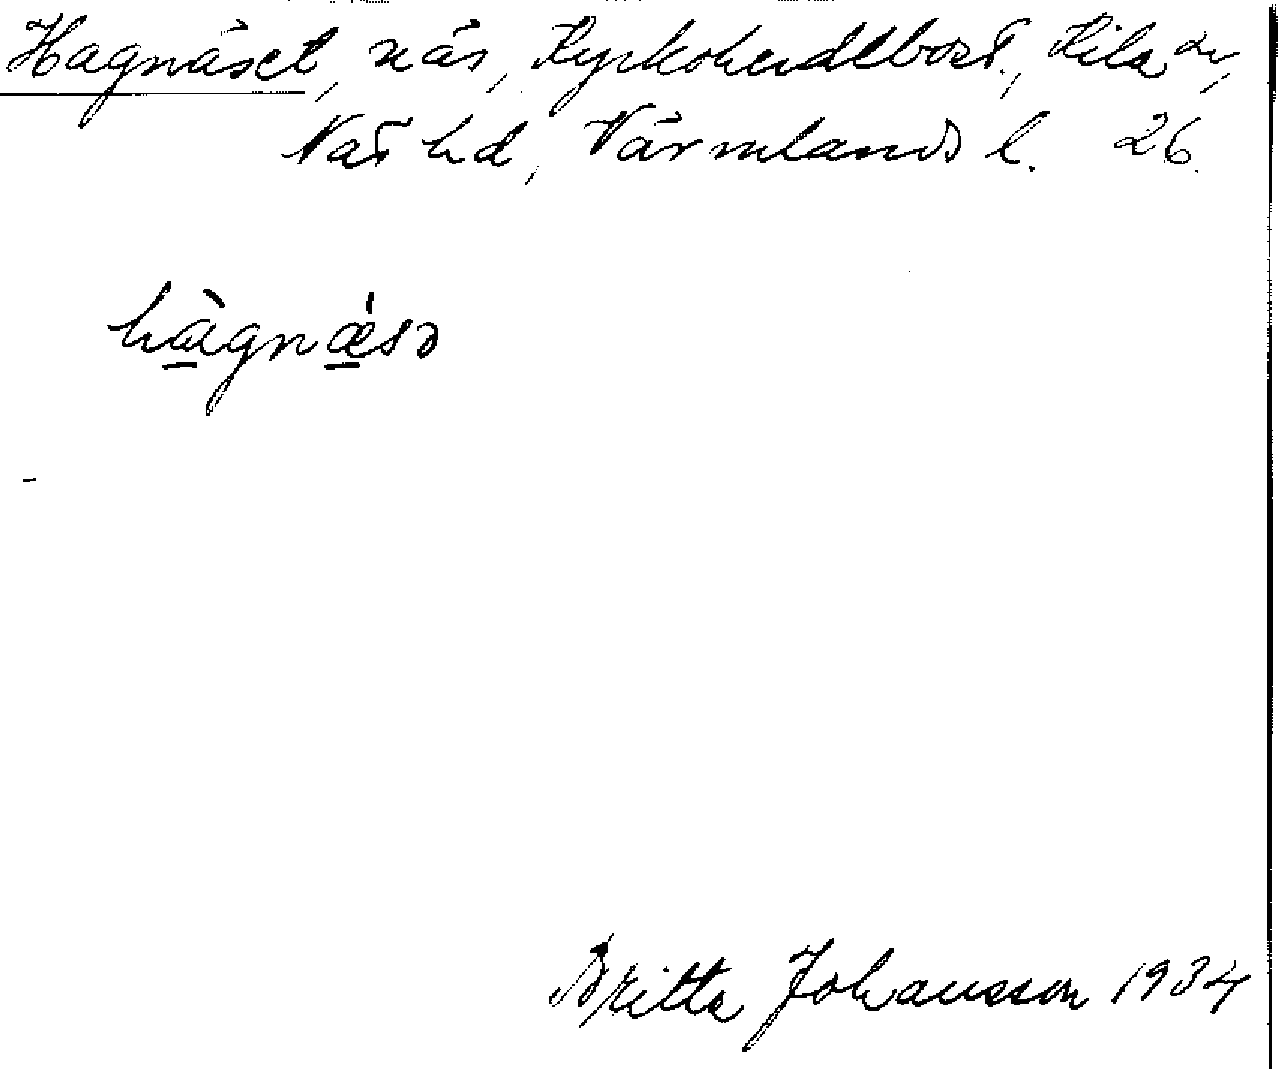 Hagnäset, näs, Kyrkoherdebost., Kila sn,
Näs hd, Värmlands l. 26.
hàgnǽsə
Britta Johansson 1934